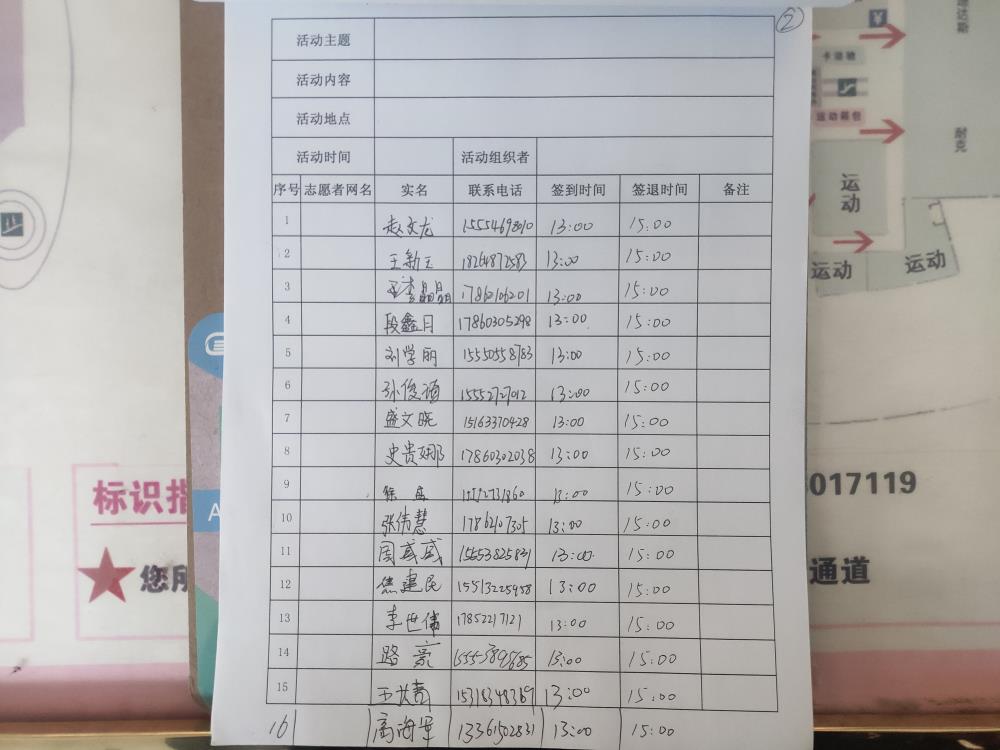 ②
活动主题
活动内容
活动地点
活动时间 活动组织者
序号 志愿者网名 实名 联系电话 签到时间 签退时间 备注
1 赵文龙 15554698010 13:00 15:00
2 王新玉 18264872583 13:00 15:00
3 李晶晶 17862106201 13:00 15:00
4 段鑫月 17860305298 13:00 15:00
5 刘学丽 15550558783 13:00 15:00
6 孙俊 15552727012 13:00 15:00
7 盛文晓 15163370428 13:00 15:00
8 史贵娜 17860302038 13:00 15:00
9 徐 13:00 15:00
10 张伟慧 17862107305 13:00 15:00
11 周盛盛 15653825831 13:00 15:00
12 焦建民 13:00 15:00
13 李世伟 17852217121 13:00 15:00
14 路豪 13:00 15:00
15 王 15318348769 13:00 15:00
16 高海军 13361502831 13:00 15:00
卡洛驰
运动箱包
耐克
运动
运动
运动
标识指
017119
您所
通道
A